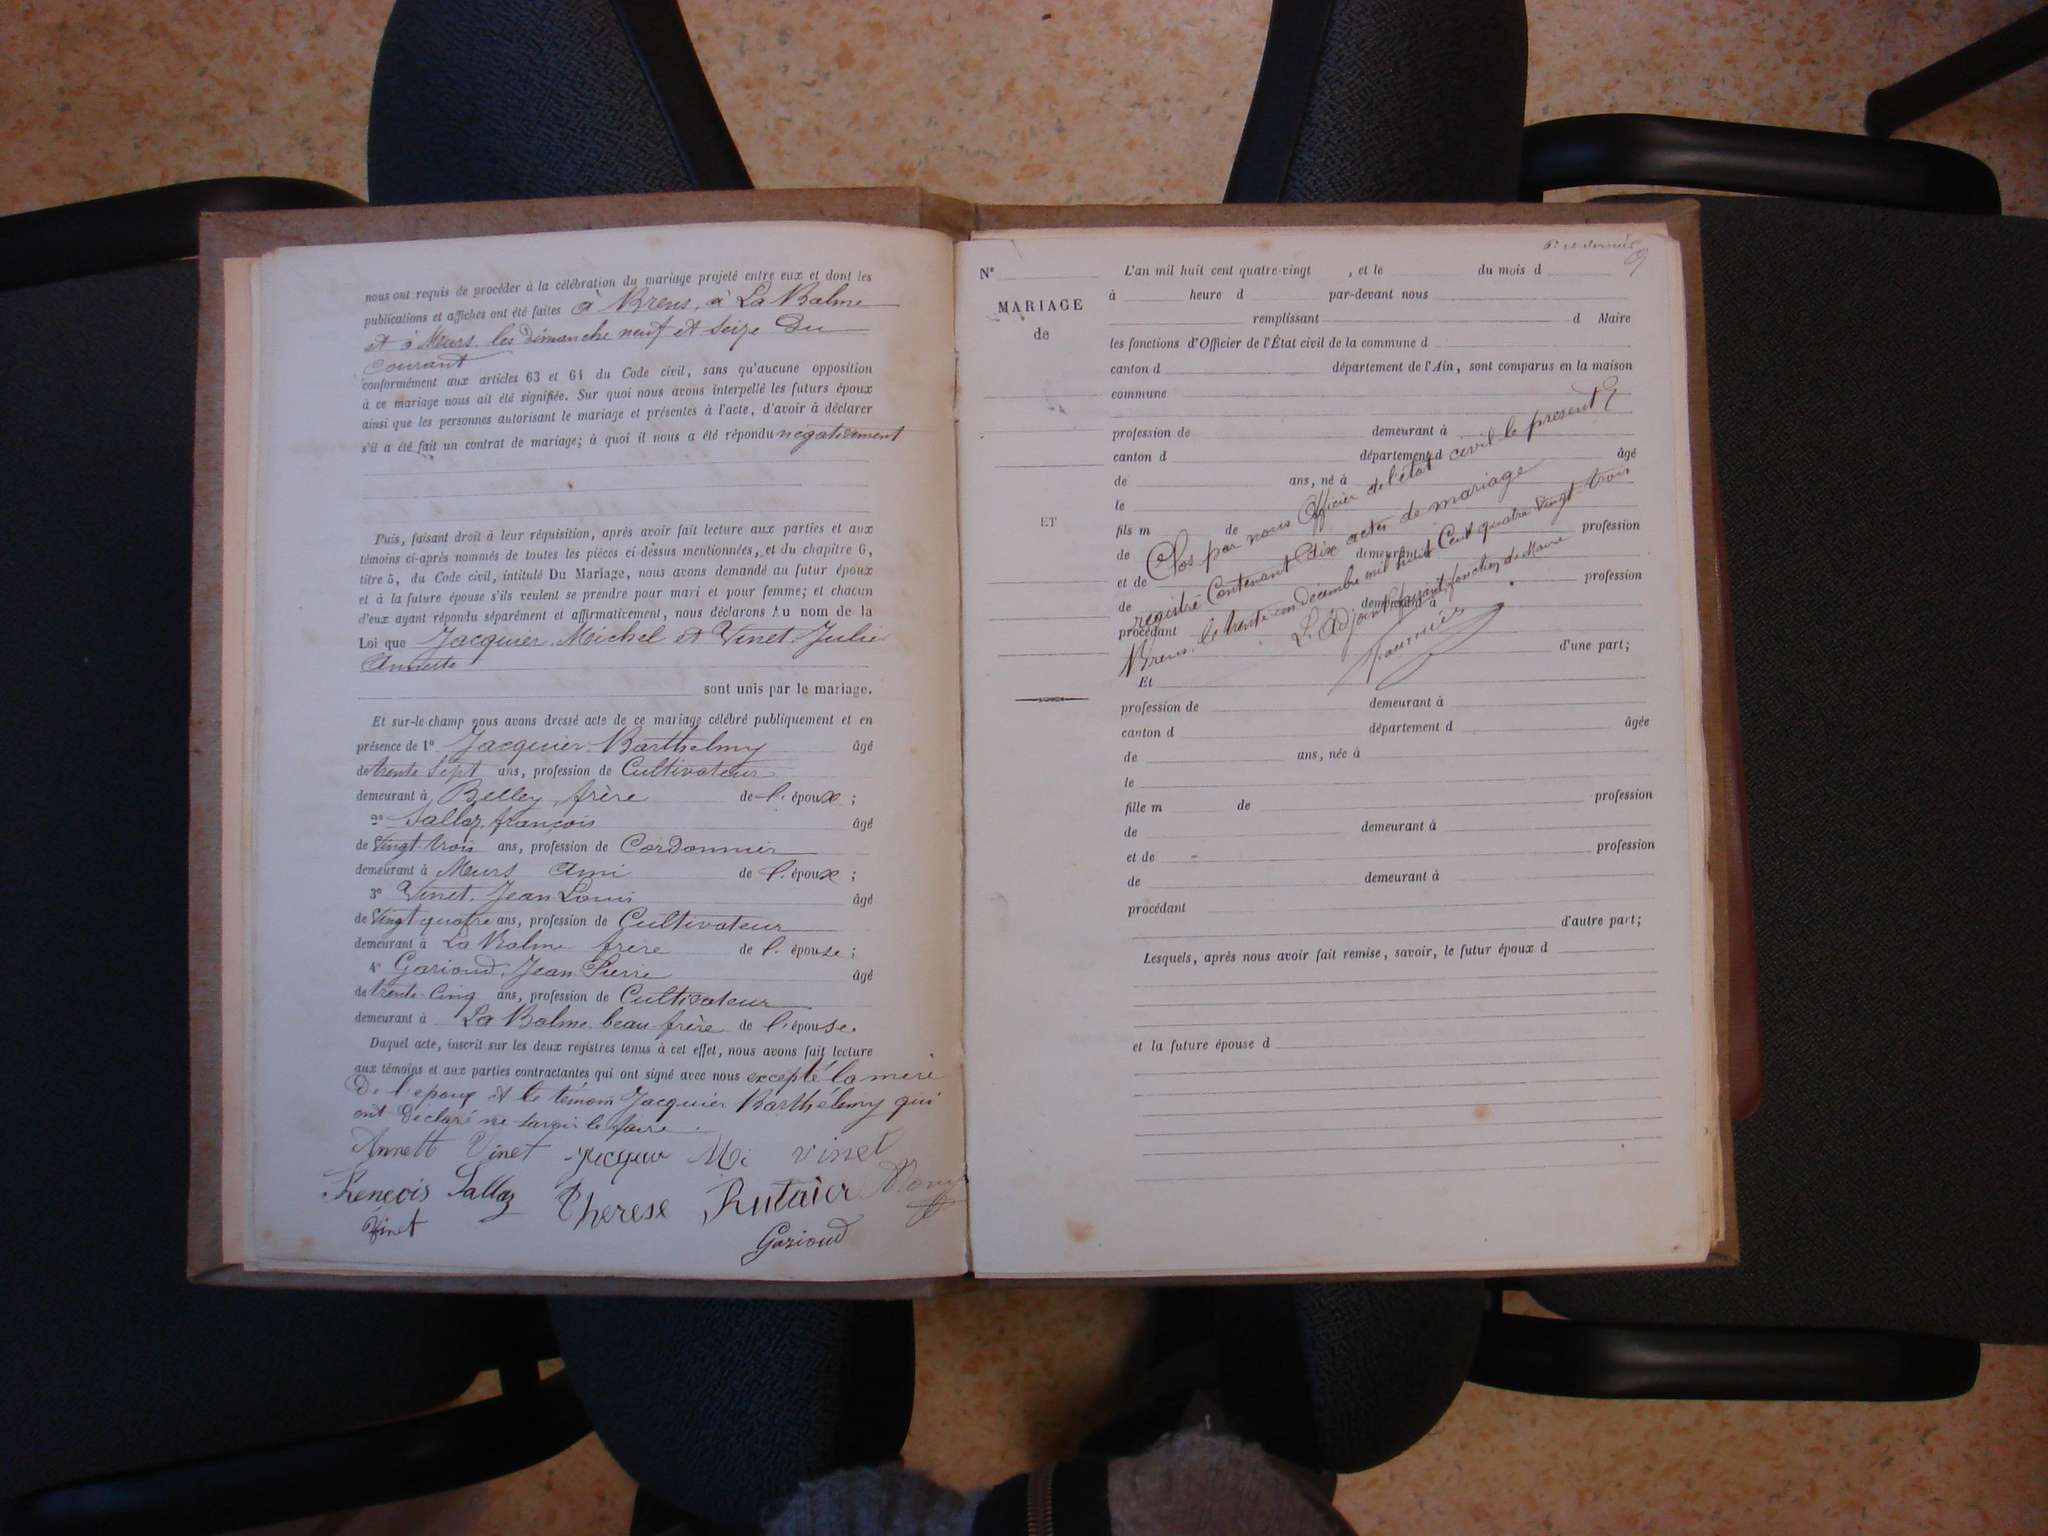 nous ont requis de procéder à la célébration du mariage projeté entre eux et dont les
publications et affiches ont été faites à Brens, à La Balme
et à Meurs les dimanche neuf et seize du
courant
conformément aux articles 63 et 64 du Code civil, sans qu'aucune opposition
à ce mariage nous ait été signifiée. Sur quoi nous avons interpellé les futurs époux
ainsi que les personnes autorisant le mariage et présentes à l'acte, d'avoir à déclarer
s'il a été fait un contrat de mariage; à quoi il nous a été répondu négativement
Puis, faisant droit à leur réquisition, après avoir fait lecture aux parties et aux
témoins ci-après nommés de toutes les pièces ci-dessus mentionnées, et du chapitre 6,
titre 5, du Code civil, intitulé Du Mariage, nous avons demandé au futur époux
et à la future épouse s'ils veulent se prendre pour mari et pour femme; et chacun
d'eux ayant répondu séparément et affirmativement, nous déclarons Au nom de la
Loi que Jacquier Michel et Vinet Julie
sont unis par le mariage.
Et sur-le-champ nous avons dressé acte de ce mariage célébré publiquement et en
présence de 1° Jacquier Barthelmy âgé
de trente sept ans, profession de Cultivateur
demeurant à Belley frère de l'époux ;
2° Sallaz françois âgé
de Vingt-trois ans, profession de Cordonnier
demeurant à Meurs Ami de l'époux ;
3° Vinet Jean Louis âgé
de Vingt quatre ans, profession de Cultivateur
demeurant à La Balme frère de l'épouse ;
4° Garioud Jean Pierre âgé
de trente-cinq ans, profession de Cultivateur
demeurant à La Balme beau-frère de l'épouse.
Duquel acte, inscrit sur les deux registres tenus à cet effet, nous avons fait lecture
aux témoins et aux parties contractantes qui ont signé avec nous excepté la mère
de l'époux et le témoin Jacquier Barthélmy qui
ont déclaré ne savoir le faire
Annett Vinet Mi vinet
François Sallaz Therese Rutaier
Vinet
Garioud
6e et dernier
N° L'an mil huit cent quatre-vingt , et le du mois d
à heure d par-devant nous
MARIAGE
remplissant d Maire
de
les fonctions d'Officier de l'État civil de la commune d
canton d département de l'Ain, sont comparus en la maison
commune
profession de demeurant à
canton d département d âgé
de ans, né à
le
ET
fils m de
de demeurant à profession
et de
de demeurant à profession
procédant
d'une part;
Clos par nous Officier de l'état civil le présent
registre Contenant dix actes de mariage
Brens, le trente-un décembre mil huit Cent quatre vingt trois
L'Adjoint faisant fonction de Maire
Et
profession de demeurant à
canton d département d âgée
de ans, née à
le
fille m de profession
de demeurant à
et de profession
de demeurant à
procédant
d'autre part;
Lesquels, après nous avoir fait remise, savoir, le futur époux d
et la future épouse d